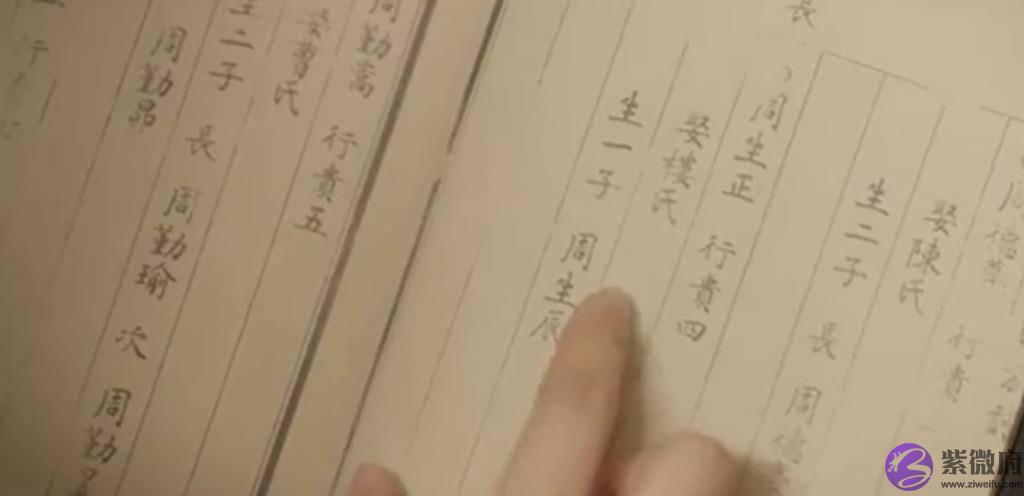 長
周德 行貴
娶陳氏
生二子 長 周德
周生正 行貴四
娶樓氏
生一子 周生辰
周勤嵩 行貴五
娶曹氏
生二子 長 周勤瑜 次 周勤
周勤昴
紫微府
www.ziweifu.com